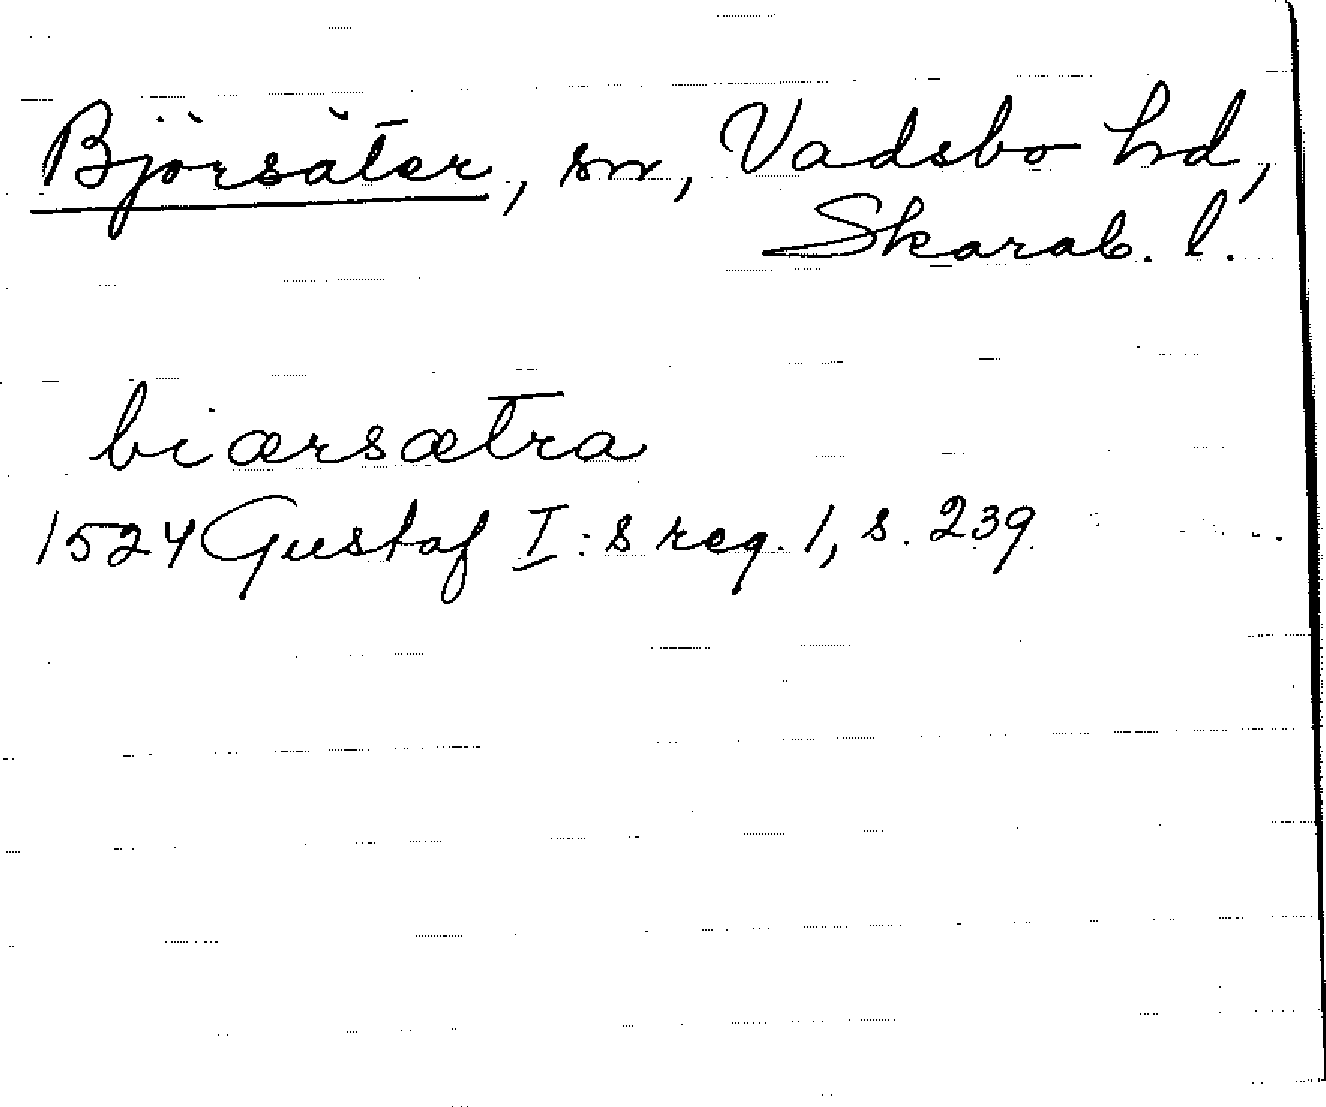 Björsäter, sn, Vadsbo hd,
Skarab. l.
biærsætra
1524 Gustaf I:s reg. 1, s. 239.